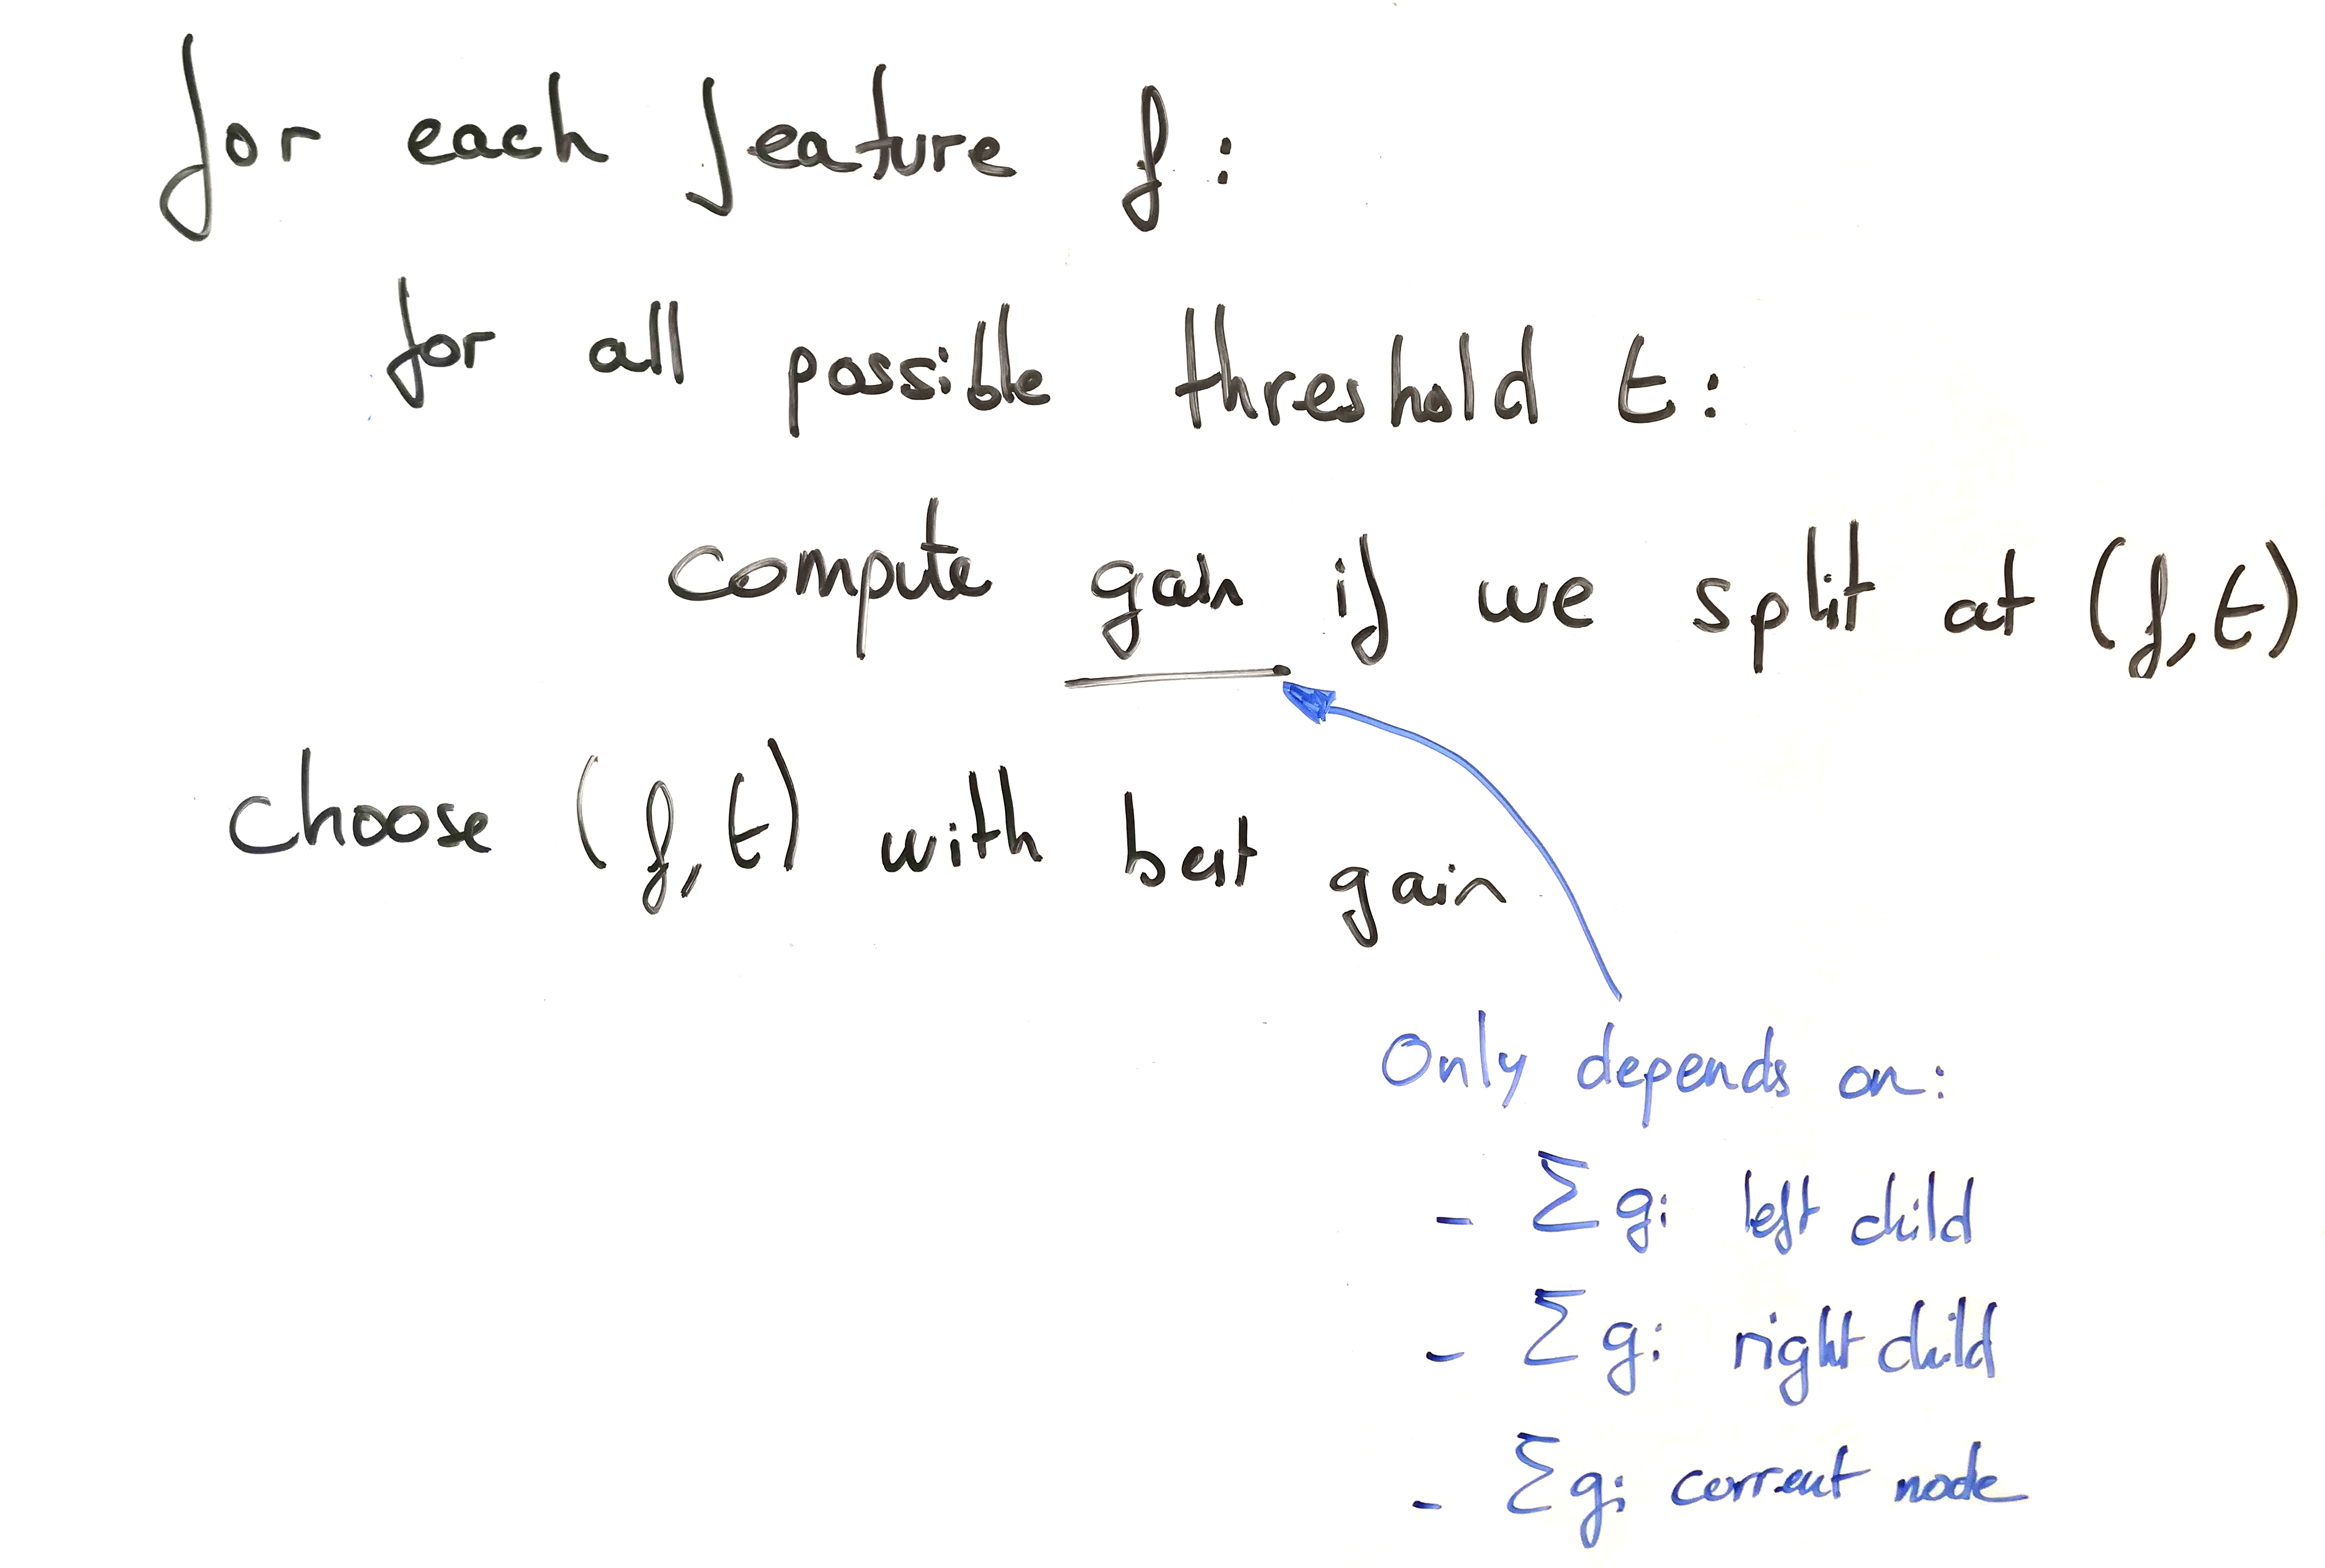 for each feature f:
for all possible threshold t:
compute gain if we split at (f,t)
choose (f,t) with best gain
Only depends on:
- Σ gi left child
- Σ gi right child
- Σ gi current node